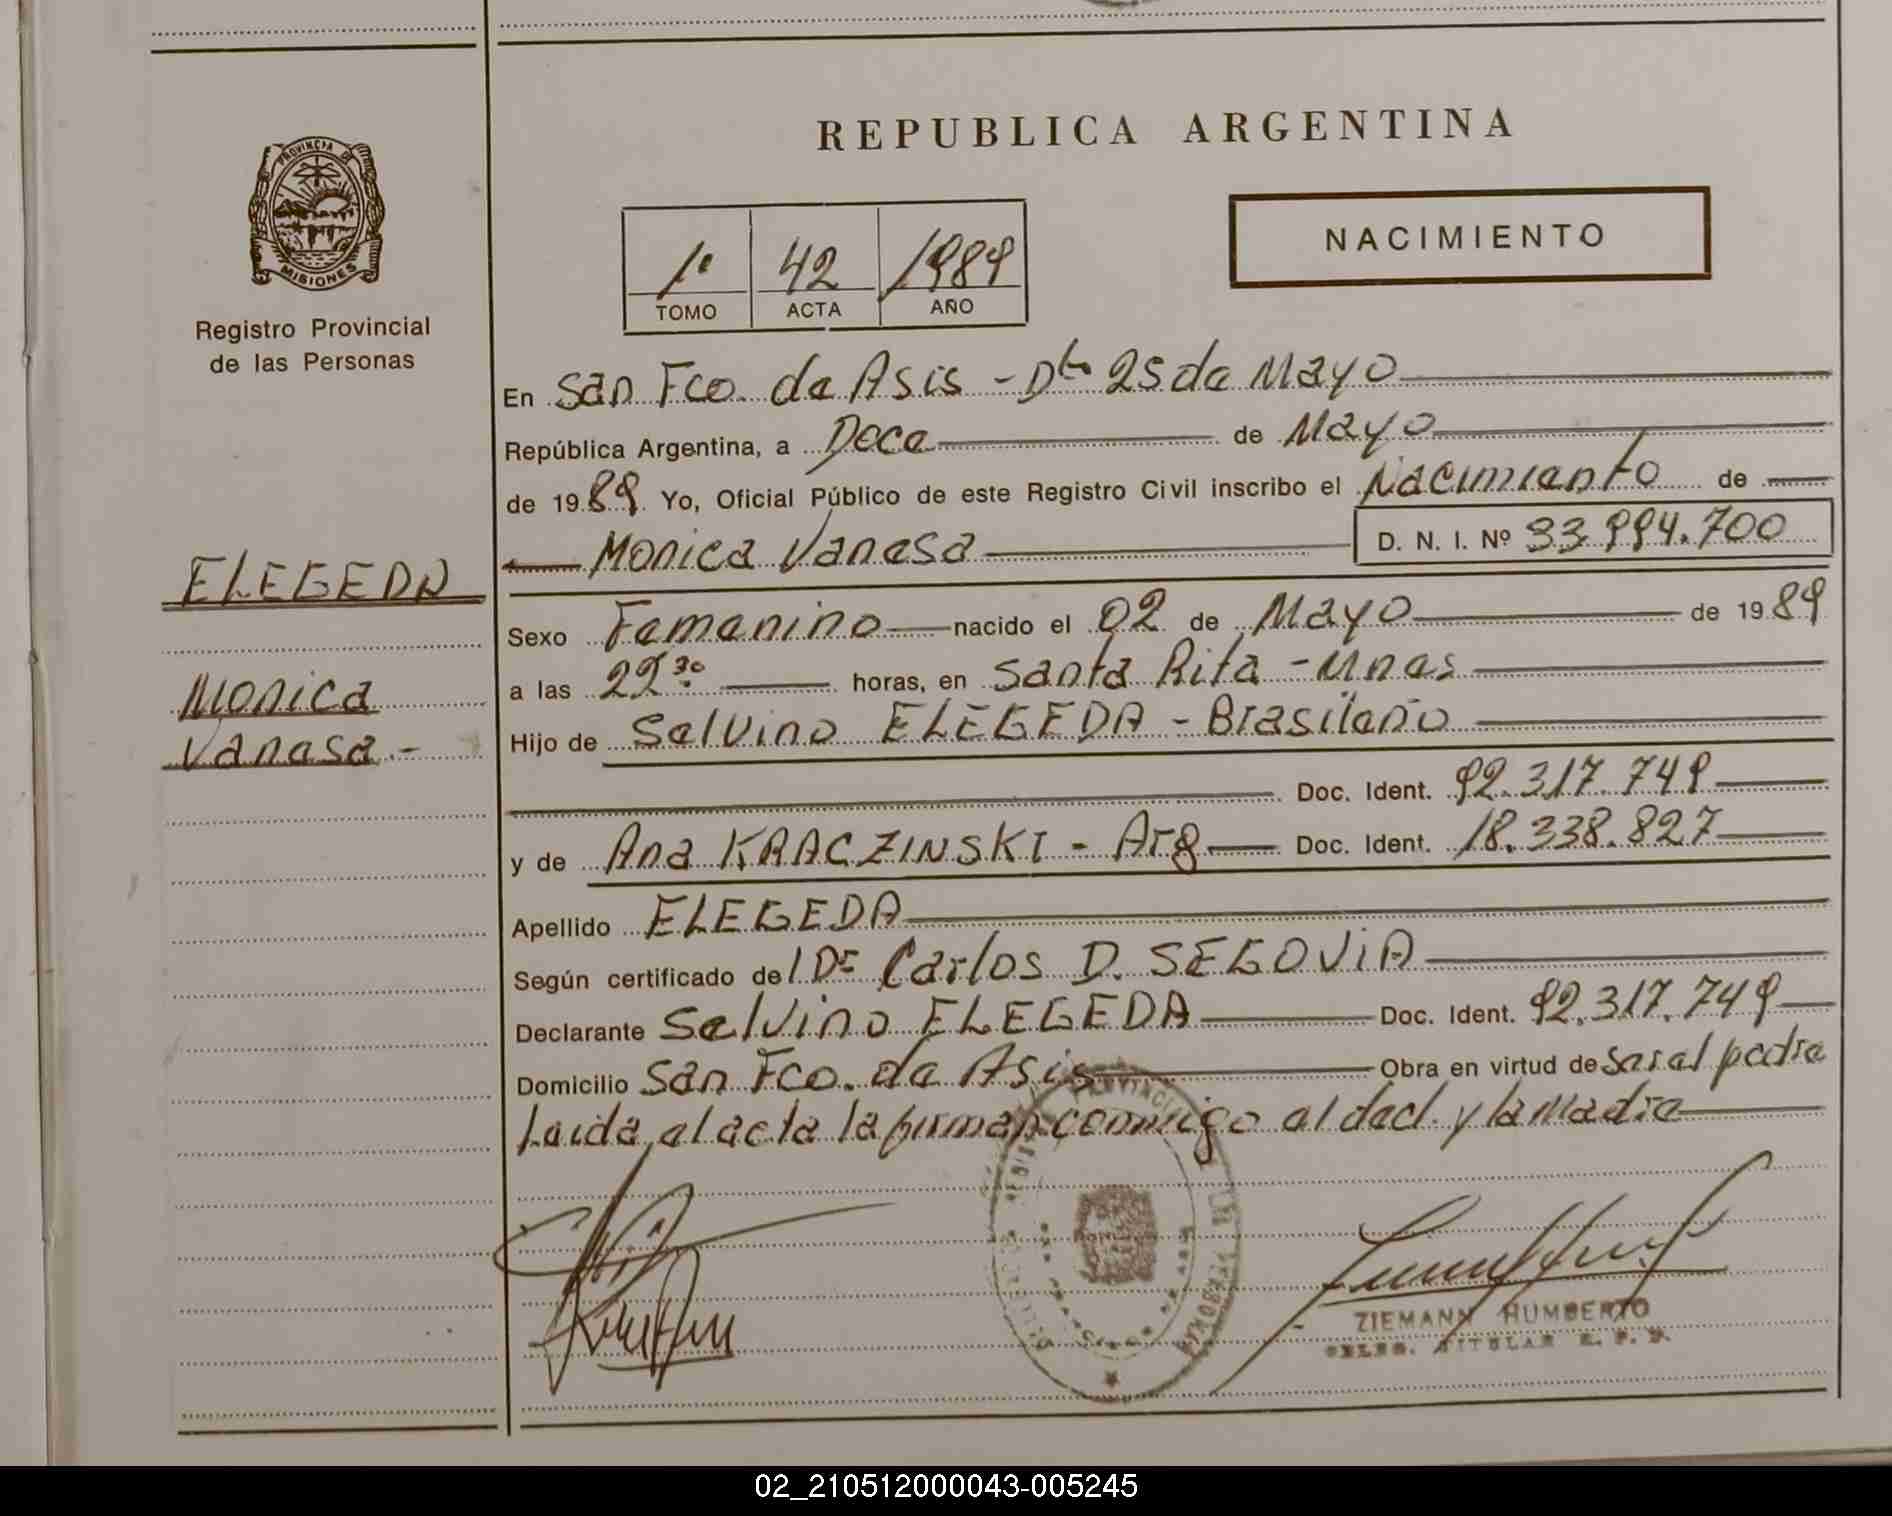 PROVINCIA DE
MISIONES
Registro Provincial
de las Personas
ELEGEDA
Monica
Vanesa.-
REPUBLICA ARGENTINA
1º 42 1989
TOMO ACTA AÑO
NACIMIENTO
En San Fco. de Asis - Dto 25 de Mayo
República Argentina, a Doce de Mayo
de 1989 Yo, Oficial Público de este Registro Civil inscribo el Nacimiento de
Monica Vanesa D. N. I. Nº 33.994.700
Sexo Femenino nacido el 02 de Mayo de 1989
a las 22:30 horas, en Santa Rita - Mnes
Hijo de Selvino ELEGEDA - Brasileño
Doc. Ident. 92.317.749
y de Ana KRACZINSKI - Arg Doc. Ident. 18.338.827
Apellido ELEGEDA
Según certificado del Dr Carlos D. SEGOVIA
Declarante Selvino ELEGEDA Doc. Ident. 92.317.749
Domicilio San Fco. de Asis Obra en virtud de ser el padre
Leida el acta la firman conmigo el decl. y la Madre
ZIEMANN HUMBERTO
DELEG. TITULAR R. P. P.
02_210512000043-005245